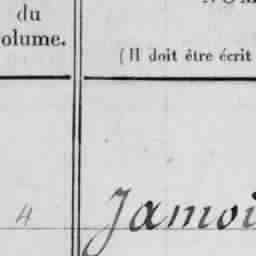 du
olume.
(Il doit être écrit
4
Jamoi